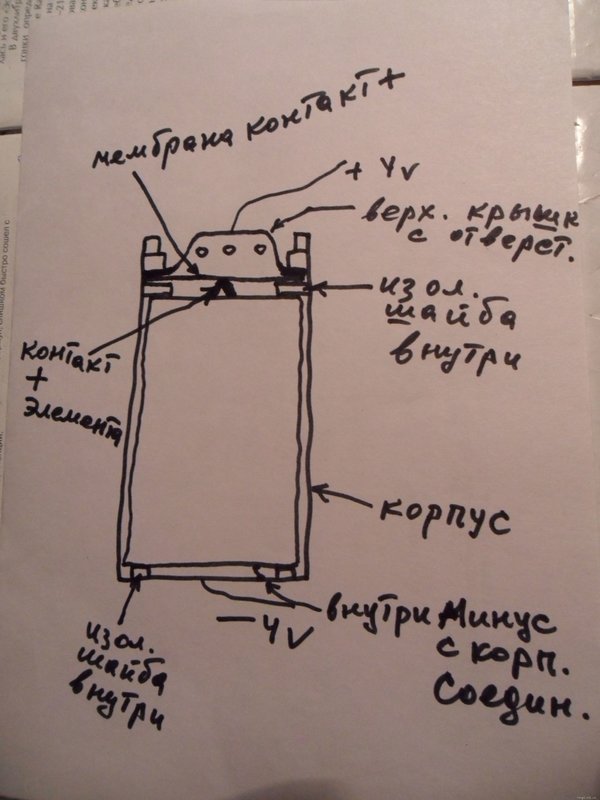 мембрана контакт +
+ 4v
верх. крышк
с отверст.
изол.
шайба
внутри
контакт
+
элемента
корпус
внутри минус
с корп.
соедин.
— 4v
изол.
шайба
внутри